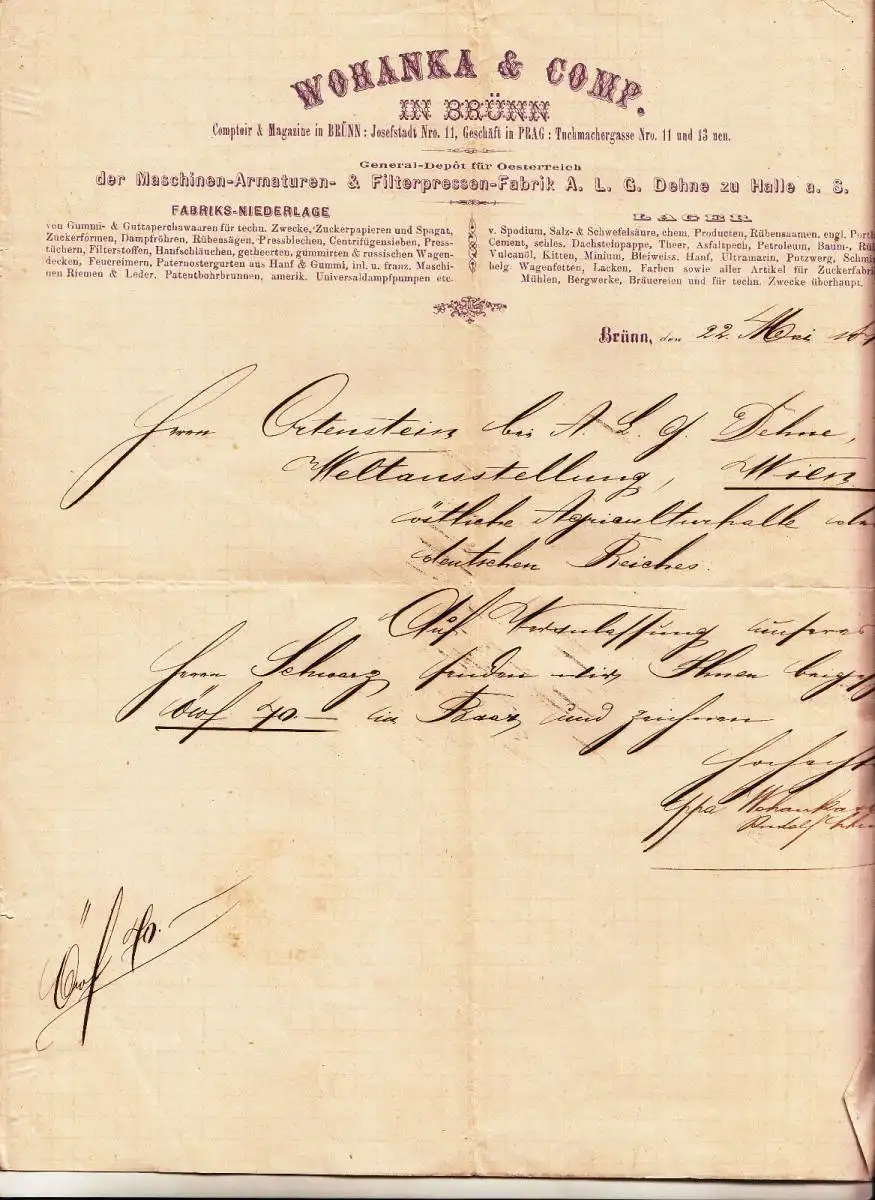 WOHANKA & COMP.
IN BRÜNN
Comptoir & Magazine in BRÜNN: Josefstadt Nro. 11, Geschäft in PRAG: Tuchmachergasse Nro. 11 und 13 neu.
General-Depôt für Oesterreich
der Maschinen-Armaturen- & Filterpressen-Fabrik A. L. G. Dehne zu Halle a. S.
FABRIKS-NIEDERLAGE
von Gummi- & Guttaperchawaaren für techn. Zwecke, Zuckerpapieren und Spagat,
Zuckerformen, Dampfröhren, Rübensägen, Pressblechen, Centrifugensieben, Press-
tüchern, Filterstoffen, Hanfschläuchen, getheerten, gummirten & russischen Wagen-
decken, Feuereimern, Paternostergurten aus Hanf & Gummi, inl. u. franz. Maschi-
nen Riemen & Leder, Patentbohrbrunnen, amerik. Universaldampfpumpen etc.
LAGER
v. Spodium, Salz- & Schwefelsäure, chem. Producten, Rübensaamen, engl. Portl
Cement, schles. Dachsteinpappe, Theer, Asfaltpech, Petroleum, Baum-, Rü
Vulcanöl, Kitten, Minium, Bleiweiss, Hanf, Ultramarin, Putzwerg, Schmi
belg. Wagenfetten, Lacken, Farben sowie aller Artikel für Zuckerfabri
Mühlen, Bergwerke, Bräuereien und für techn. Zwecke überhaupt.
Brünn, den 22. Mai 18
Herrn Ortenstein bei A. L. G. Dehne,
Weltausstellung, Wien
östliche Agriculturhalle de
deutschen Reiches.
Auf Veranlassung unseres
Herrn Schwarz senden wir Ihnen beige
öwf 70.— in Baar und zeichnen
Hochacht
ppa Wohanka &
Rudolf
Öwf 70.—